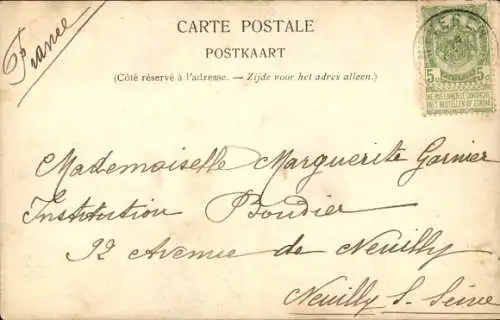 France
CARTE POSTALE
POSTKAART
(Côté réservé à l'adresse. — Zijde voor het adres alleen.)
5c 5c
NE PAS LIVRER LE DIMANCHE
NIET BESTELLEN OP ZONDAG
Mademoiselle Marguerite Garnier
Institution Boudier
92 Avenue de Neuilly
Neuilly S. Seine